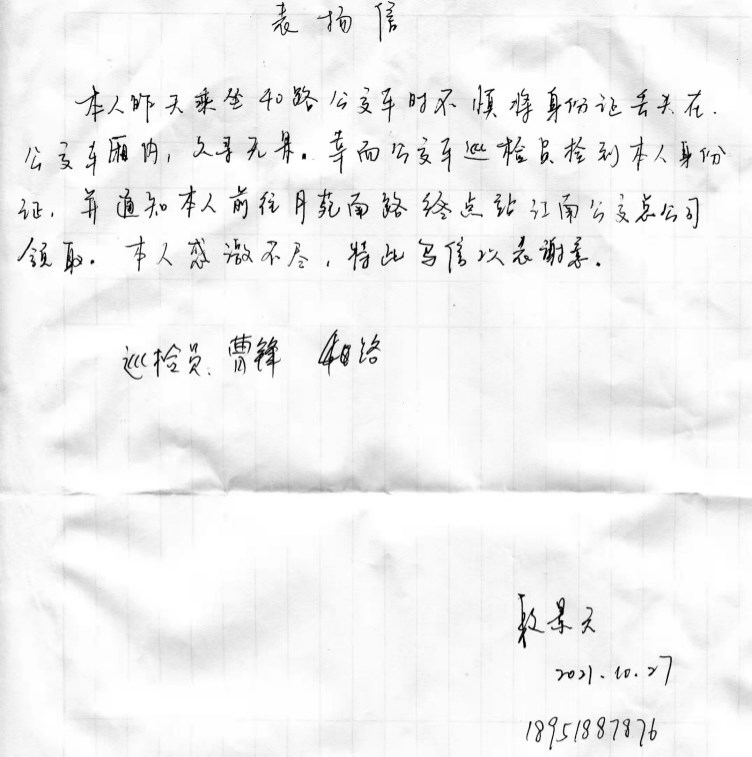 表扬信
本人昨天乘坐40路公交车时不慎将身份证丢失在
公交车厢内，久寻无果。幸而公交车巡检员捡到本人身份
证，并通知本人前往月苑南路终点站江南公交总公司
领取。本人感激不尽，特此写信以表谢意。
巡检员：曹锋
景天
2021.10.27
18951887876